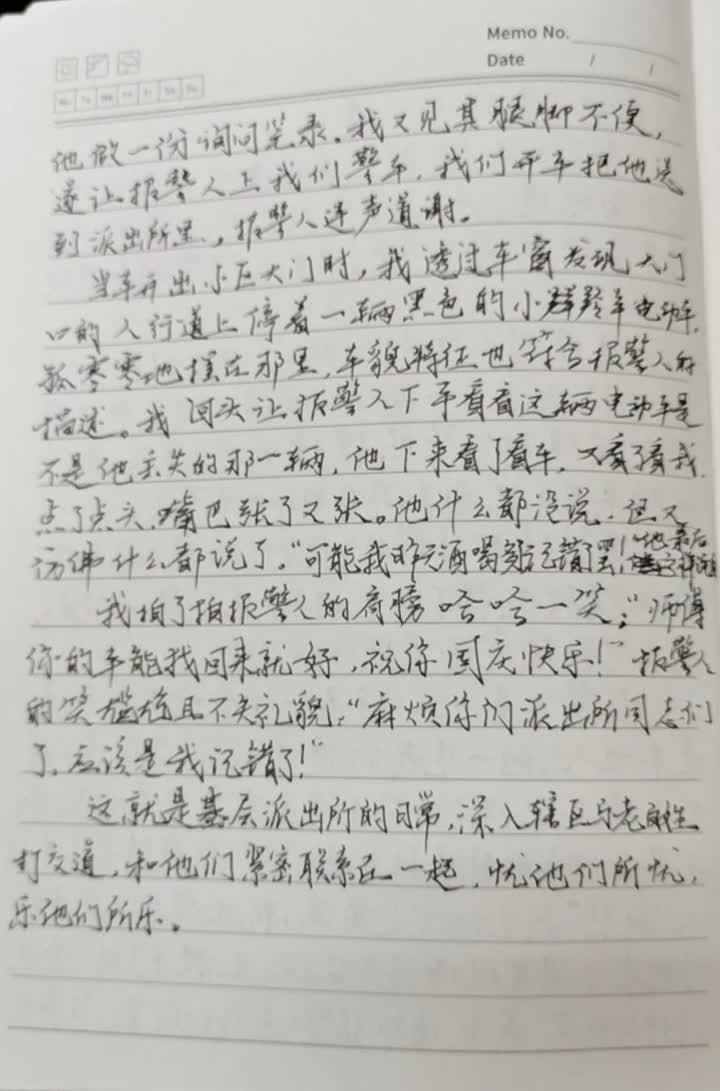 Memo No.
Date / /
他做一份询问笔录。我又见其腿脚不便，
遂让报警人上我们警车，我们开车把他送
到派出所里，报警人连声道谢。
当车开出小区大门时，我透过车窗发现大门
口的人行道上停着一辆黑色的小羚羊电动车，
孤零零地摆在那里，车貌特征也符合报警人的
描述。我回头让报警人下车看看这辆电动车是
不是他丢失的那一辆，他下来看了看车，又看了看我，
点了点头，嘴巴张了又张。他什么都没说，但又
仿佛什么都说了。“可能我昨天酒喝多记错了罢！”他最后
我拍了拍报警人的肩膀哈哈一笑：“师傅
你的车能找回来就好，祝你国庆快乐！”报警人
的笑尴尬且不失礼貌，“麻烦你们派出所同志们
了，应该是我记错了！”
这就是基层派出所的日常，深入辖区与老百姓
打交道，和他们紧密联系在一起，忧他们所忧，
乐他们所乐。